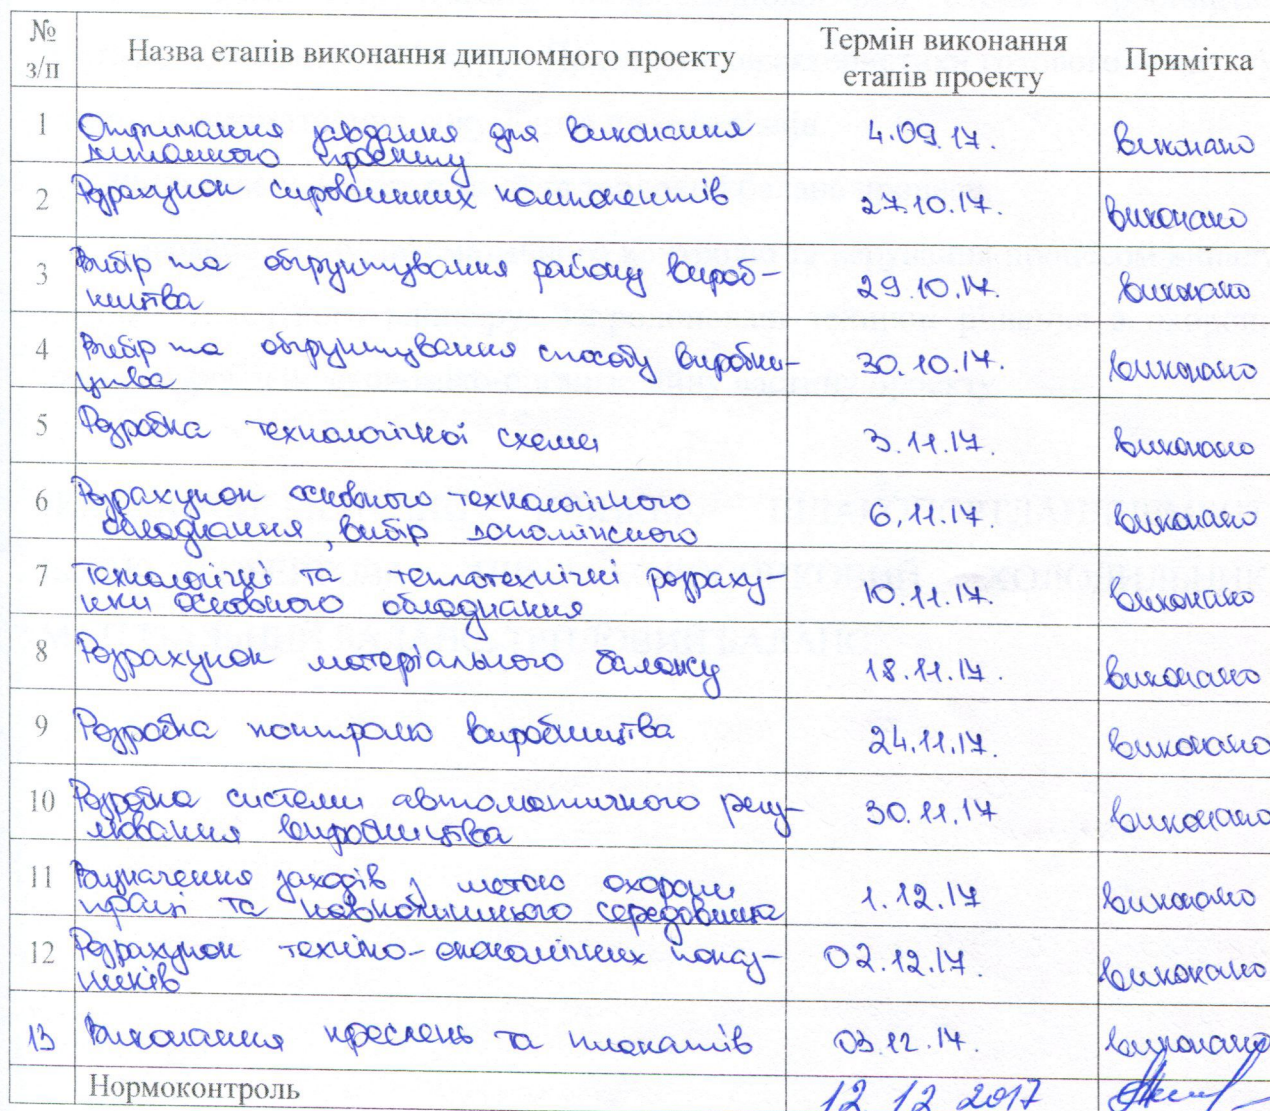 № з/п
Назва етапів виконання дипломного проекту
Термін виконання
етапів проекту
Примітка
1 Отримання завдання для виконання 4.09.17. виконано
дипломного проекту
2 Розрахунок сировинних компонентів 27.10.17. виконано
3 Вибір та обгрунтування району вироб- 29.10.17. виконано
ництва
4 Вибір та обгрунтування способу виробни- 30.10.17. виконано
цтва
5 Розробка технологічної схеми 3.11.17. виконано
6 Розрахунок основного технологічного 6.11.17. виконано
обладнання, вибір допоміжного
7 Технологічні та теплотехнічні розраху- 10.11.17. виконано
нки основного обладнання
8 Розрахунок матеріального балансу 18.11.17. виконано
9 Розробка контролю виробництва 24.11.17. виконано
10 Розробка системи автоматичного регу- 30.11.17 виконано
лювання виробництва
11 Визначення заходів з метою охорони 1.12.17 виконано
праці та навколишнього середовища
12 Розрахунок техніко-економічних показ- 02.12.17. виконано
ників
13 Виконання креслень та плакатів 03.12.17. виконано
Нормоконтроль 12 12 2017